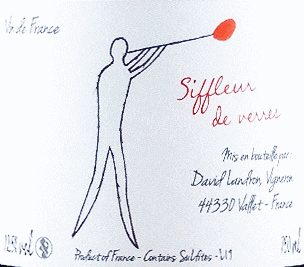 Vin de France
Siffleur
de verres
Mis en bouteille par :
David Landron, Vigneron
44330 Vallet - France
12,5% vol
750 ml
Product of France - Contains Sulfites - L19